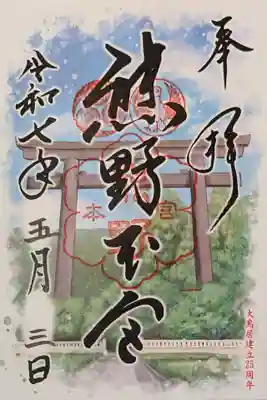 奉拝
熊野本宮
令和七年 五月 三日
本宮
大鳥居建立25周年